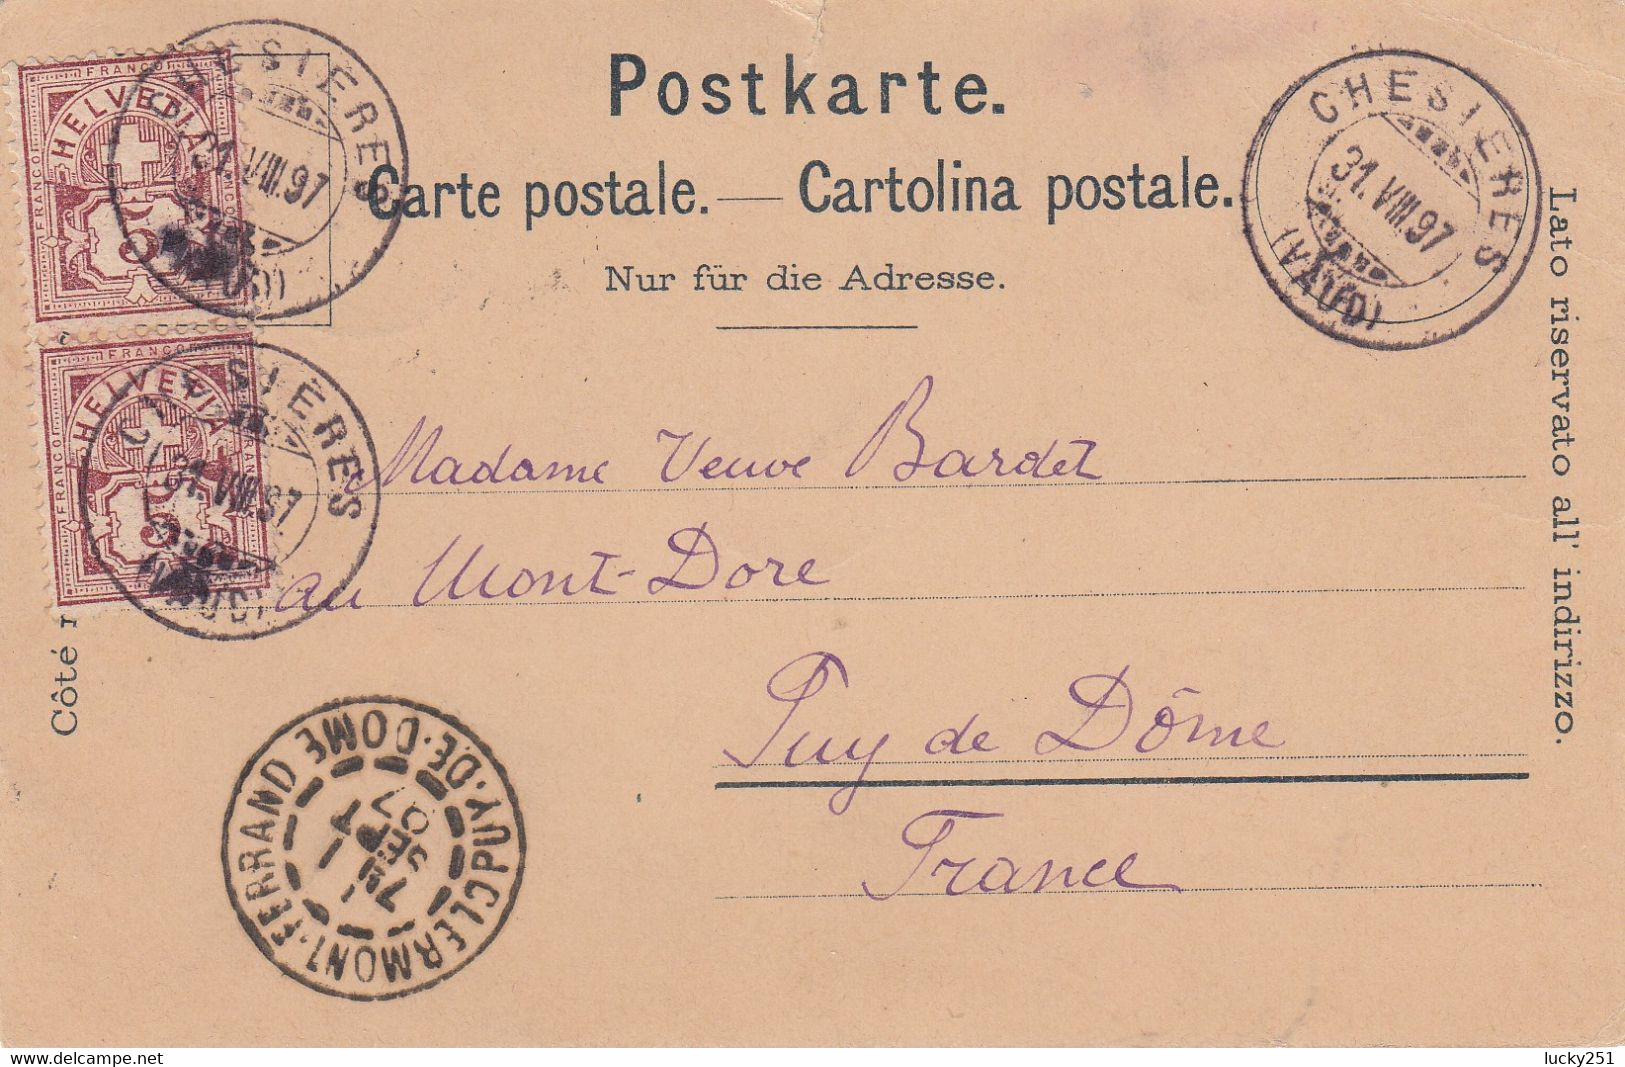 Postkarte.
Carte postale. — Cartolina postale.
Nur für die Adresse.
FRANCO
HELVETIA
FRANCO
FRANCO
5
CHESIÈRES
31.VIII.97
(VAUD)
FRANCO
HELVETIA
FRANCO
5
SIÈRES
31.VIII.97
CHESIÈRES
31.VIII.97
(VAUD)
Côté r
Lato riservato all' indirizzo.
Madame Veuve Bardet
au Mont-Dore
Puy de Dôme
France
CLERMONT-FERRAND
PUY-DE-DOME
delcampe.net
lucky251